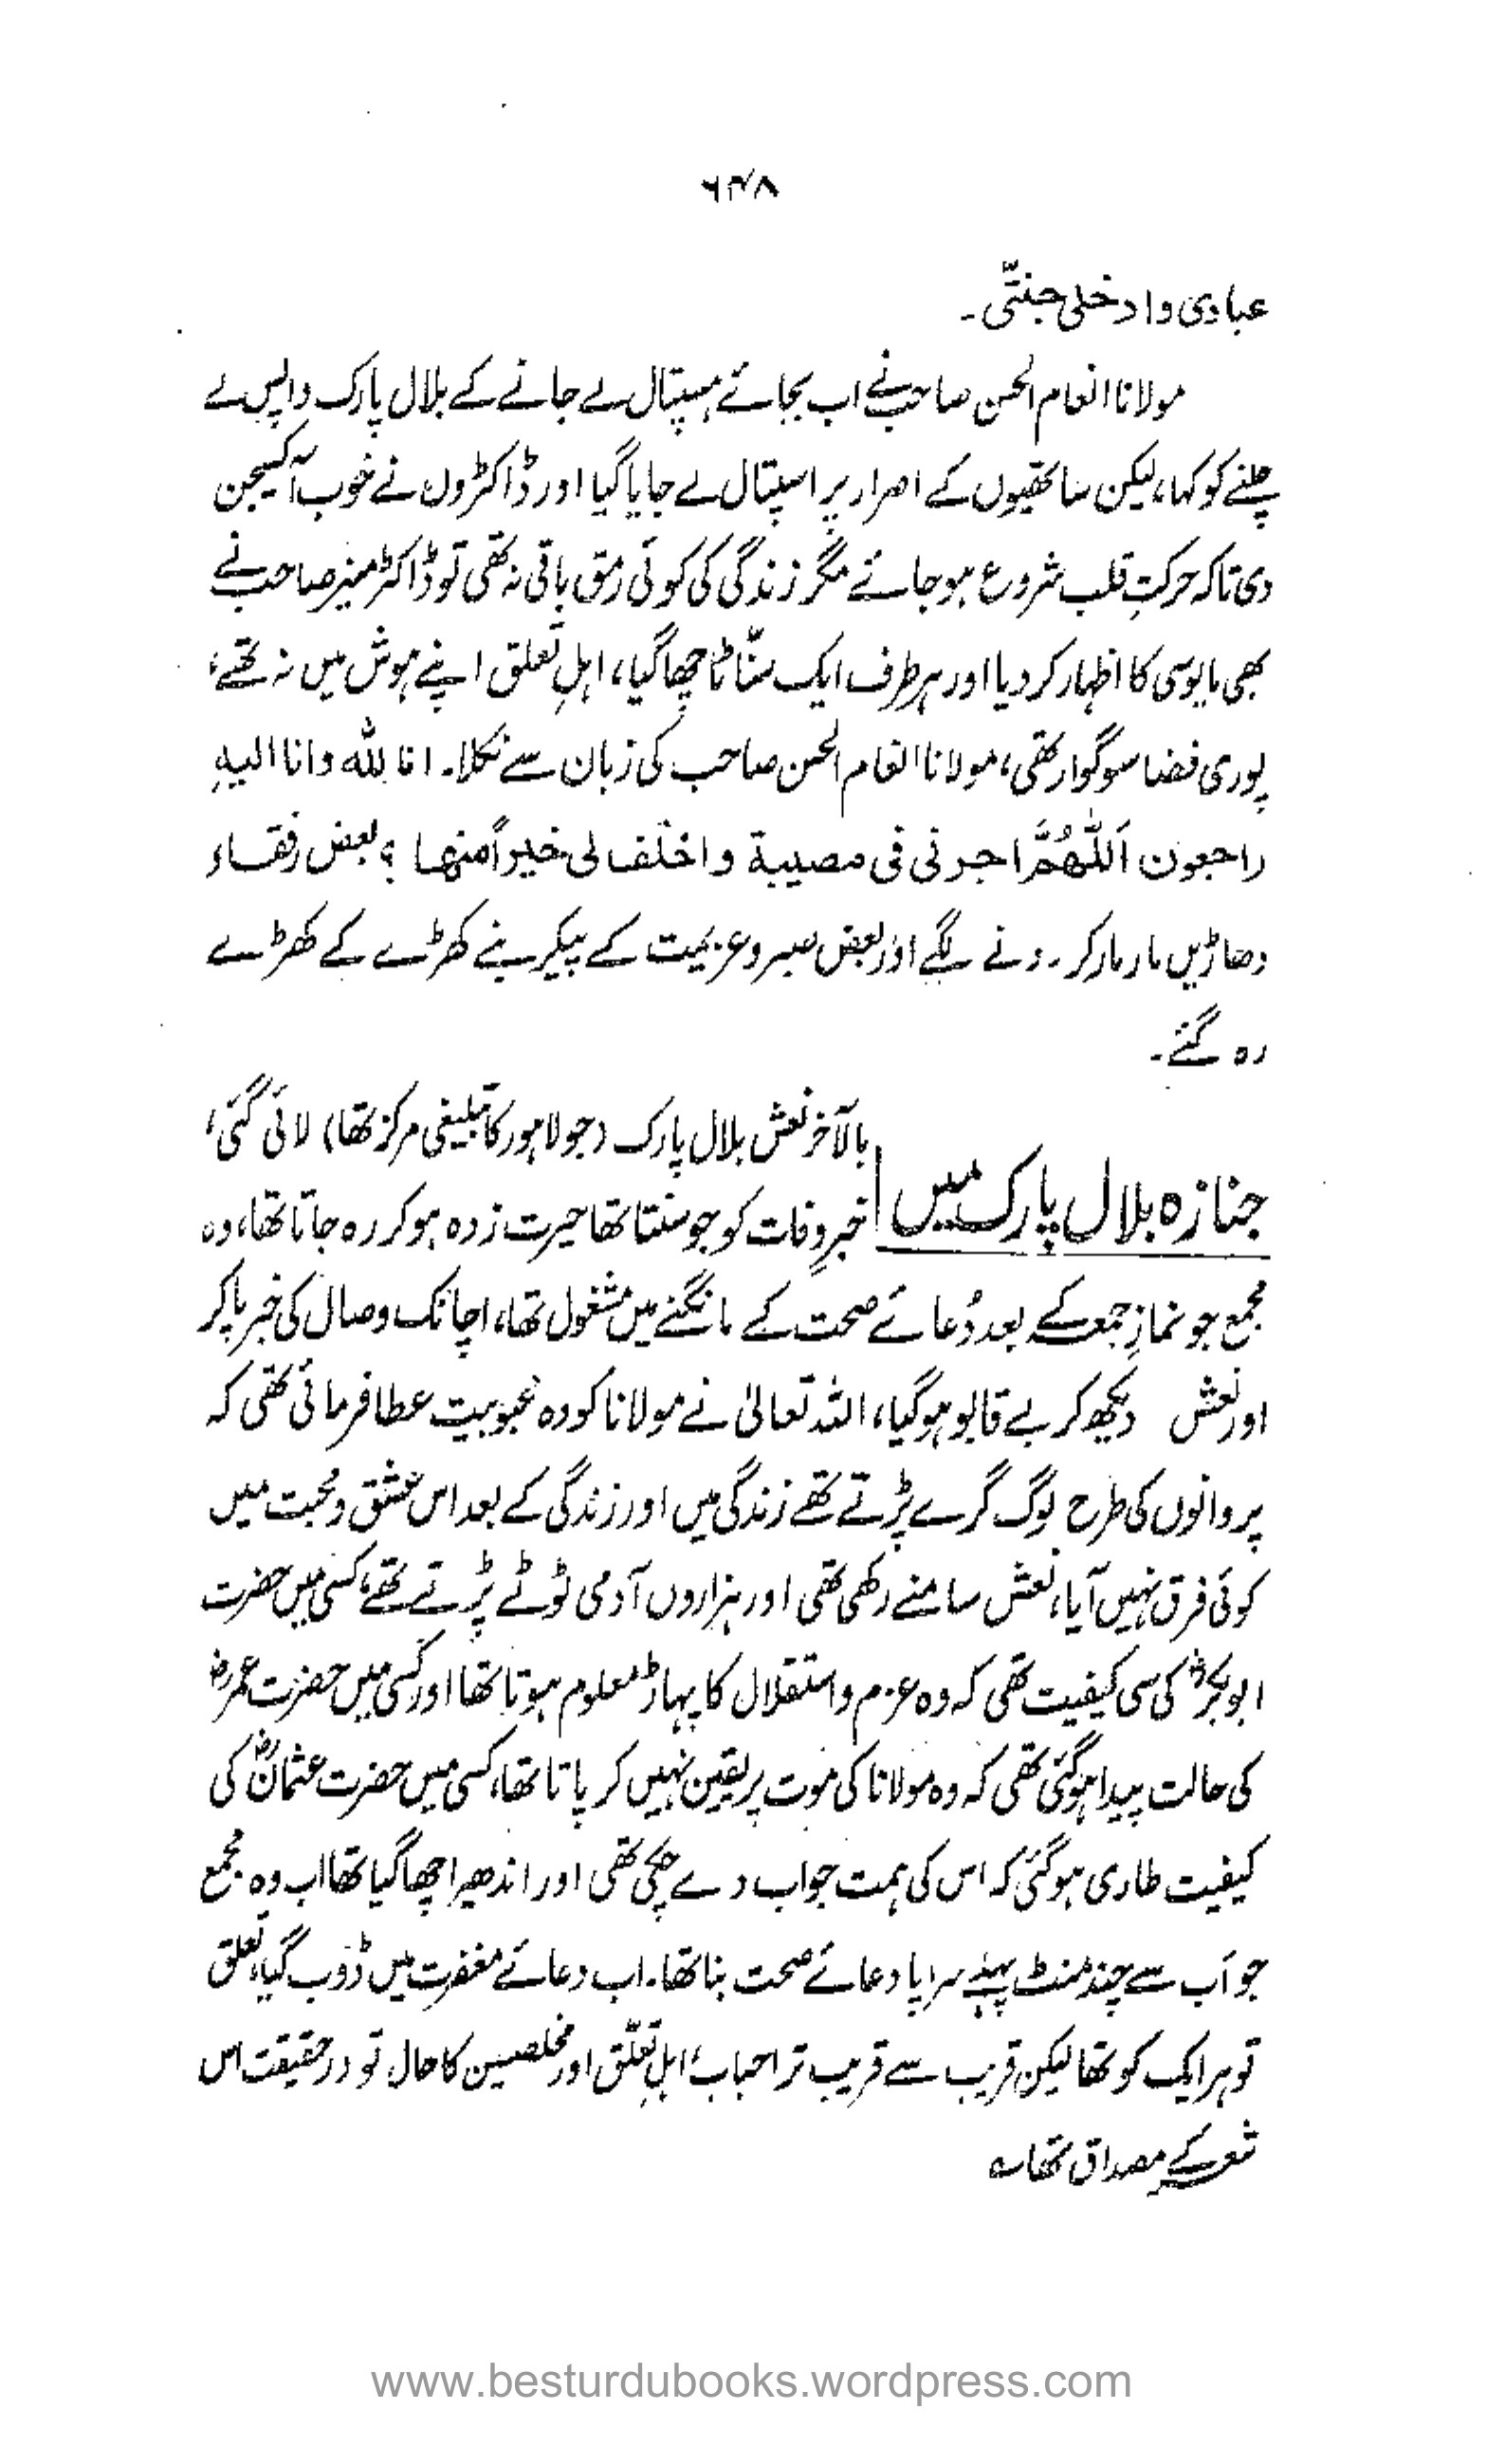 ۶۴۸
عبادی وادخلی جنتّی۔
مولانا انعام الحسن صاحب نے اب بجائے ہسپتال لے جانے کے بلال پارک واپس لے
چلنے کو کہا، لیکن ساتھیوں کے اصرار پر اسپتال لے جایا گیا اور ڈاکٹروں نے خوب آکسیجن
دی تاکہ حرکتِ قلب شروع ہو جائے مگر زندگی کی کوئی رمق باقی نہ تھی تو ڈاکٹر منیر صاحب نے
بھی مایوسی کا اظہار کر دیا اور ہر طرف ایک سنّاٹا چھا گیا، اہلِ تعلق اپنے ہوش میں نہ تھے،
پوری فضا سوگوار تھی، مولانا انعام الحسن صاحب کی زبان سے نکلا۔ انا للہ وانا الیہِ
راجعون اَللّٰھُمَّ اجرنی فی مصیبة واخلف لی خیراً منھا ؟ بعض رفقاء
دھاڑیں مار مار کر رونے لگے اور بعض صبر و عزیمت کے پیکر بنے کھڑے کے کھڑے
رہ گئے۔
جنازہ بلال پارک میں
بالآخر نعش بلال پارک (جو لاہور کا تبلیغی مرکز تھا) لائی گئی،
خبرِ وفات کو جو سنتا تھا حیرت زدہ ہو کر رہ جاتا تھا، وہ
مجمع جو نمازِ جمعہ کے بعد دُعائے صحت کے مانگنے میں مشغول تھا، اچانک وصال کی خبر پا کر
اور نعش دیکھ کر بے قابو ہو گیا، اللہ تعالیٰ نے مولانا کو وہ محبوبیت عطا فرمائی تھی کہ
پروانوں کی طرح لوگ گرے پڑتے تھے زندگی میں اور زندگی کے بعد اس عشق و محبت میں
کوئی فرق نہیں آیا، نعش سامنے رکھی تھی اور ہزاروں آدمی ٹوٹے پڑتے تھے، کسی میں حضرت
ابوبکرؓ کی سی کیفیت تھی کہ وہ عزم و استقلال کا پہاڑ معلوم ہوتا تھا اور کسی میں حضرت عمرؓ
کی حالت پیدا ہو گئی تھی کہ وہ مولانا کی موت پر یقین نہیں کر پاتا تھا، کسی میں حضرت عثمانؓ کی
کیفیت طاری ہو گئی کہ اس کی ہمت جواب دے چکی تھی اور اندھیرا چھا گیا تھا اب وہ مجمع
جو اَب سے چند منٹ پہلے سراپا دعائے صحت بنا تھا۔ اب دعائے مغفرت میں ڈوب گیا، تعلق
تو ہر ایک کو تھا لیکن قریب سے قریب تر احباب، اہلِ تعلّق اور مخلصین کا حال تو در حقیقت اس
شعر کے مصداق تھا ؎
www.besturdubooks.wordpress.com